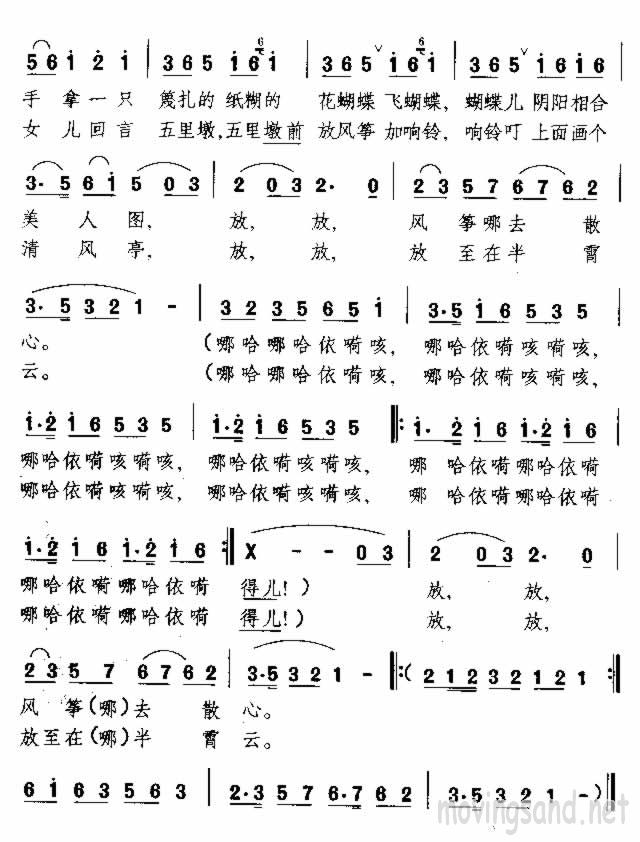 5 6 i 2 i | 3 6 5 i 6 i | 3 6 5 ˅ i 6 i | 3 6 5 ˅ i 6 i 6
手拿一只 篾扎的纸糊的 花蝴蝶飞蝴蝶, 蝴蝶儿阴阳相合
女儿回言 五里墩,五里墩前 放风筝加响铃, 响铃叮上面画个
3· 5 6 i 5 0 3 | 2 0 3 2· 0 | 2 3 5 7 6 7 6 2
美人图, 放, 放, 风筝哪去散
清风亭, 放, 放, 放至在半霄
3· 5 3 2 1 - | 3 2 3 5 6 5 i | 2·5 i 6 5 3 5
心。 (哪哈哪哈依嗬咳, 哪哈依嗬咳嗬咳,
云。 (哪哈哪哈依嗬咳, 哪哈依嗬咳嗬咳,
i·2 i 6 5 3 5 | i·2 i 6 5 3 5 |: i· 2 i 6 i·2 i 6
哪哈依嗬咳嗬咳, 哪哈依嗬咳嗬咳, 哪哈依嗬哪哈依嗬
哪哈依嗬咳嗬咳, 哪哈依嗬咳嗬咳, 哪哈依嗬哪哈依嗬
i·2 i 6 i·2 i 6 :| X - - 0 3 | 2 0 3 2· 0
哪哈依嗬哪哈依嗬 得儿!) 放, 放,
哪哈依嗬哪哈依嗬 得儿!) 放, 放,
2 3 5 7 6 7 6 2 | 3·5 3 2 1 - |:( 2 1 2 3 2 1 2 1 :|
风筝(哪)去散心。
放至在(哪)半霄云。
6 i 6 3 5 6 3 | 2·3 5 7 6·7 6 2 | 3·5 3 2 1 - )‖
movingsand.net